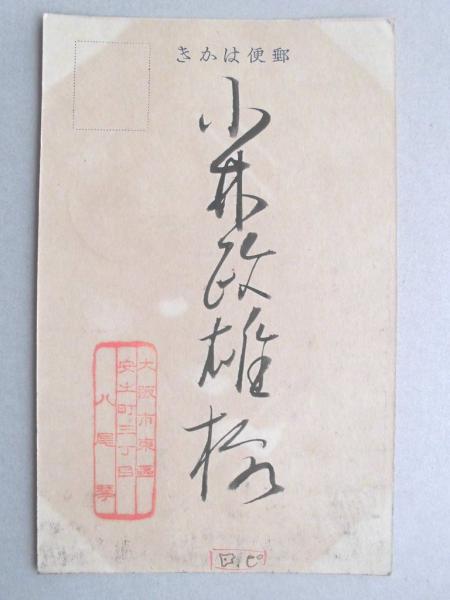 郵便はかき
小林政雄様
大阪市東區
安土町三丁目
八尾